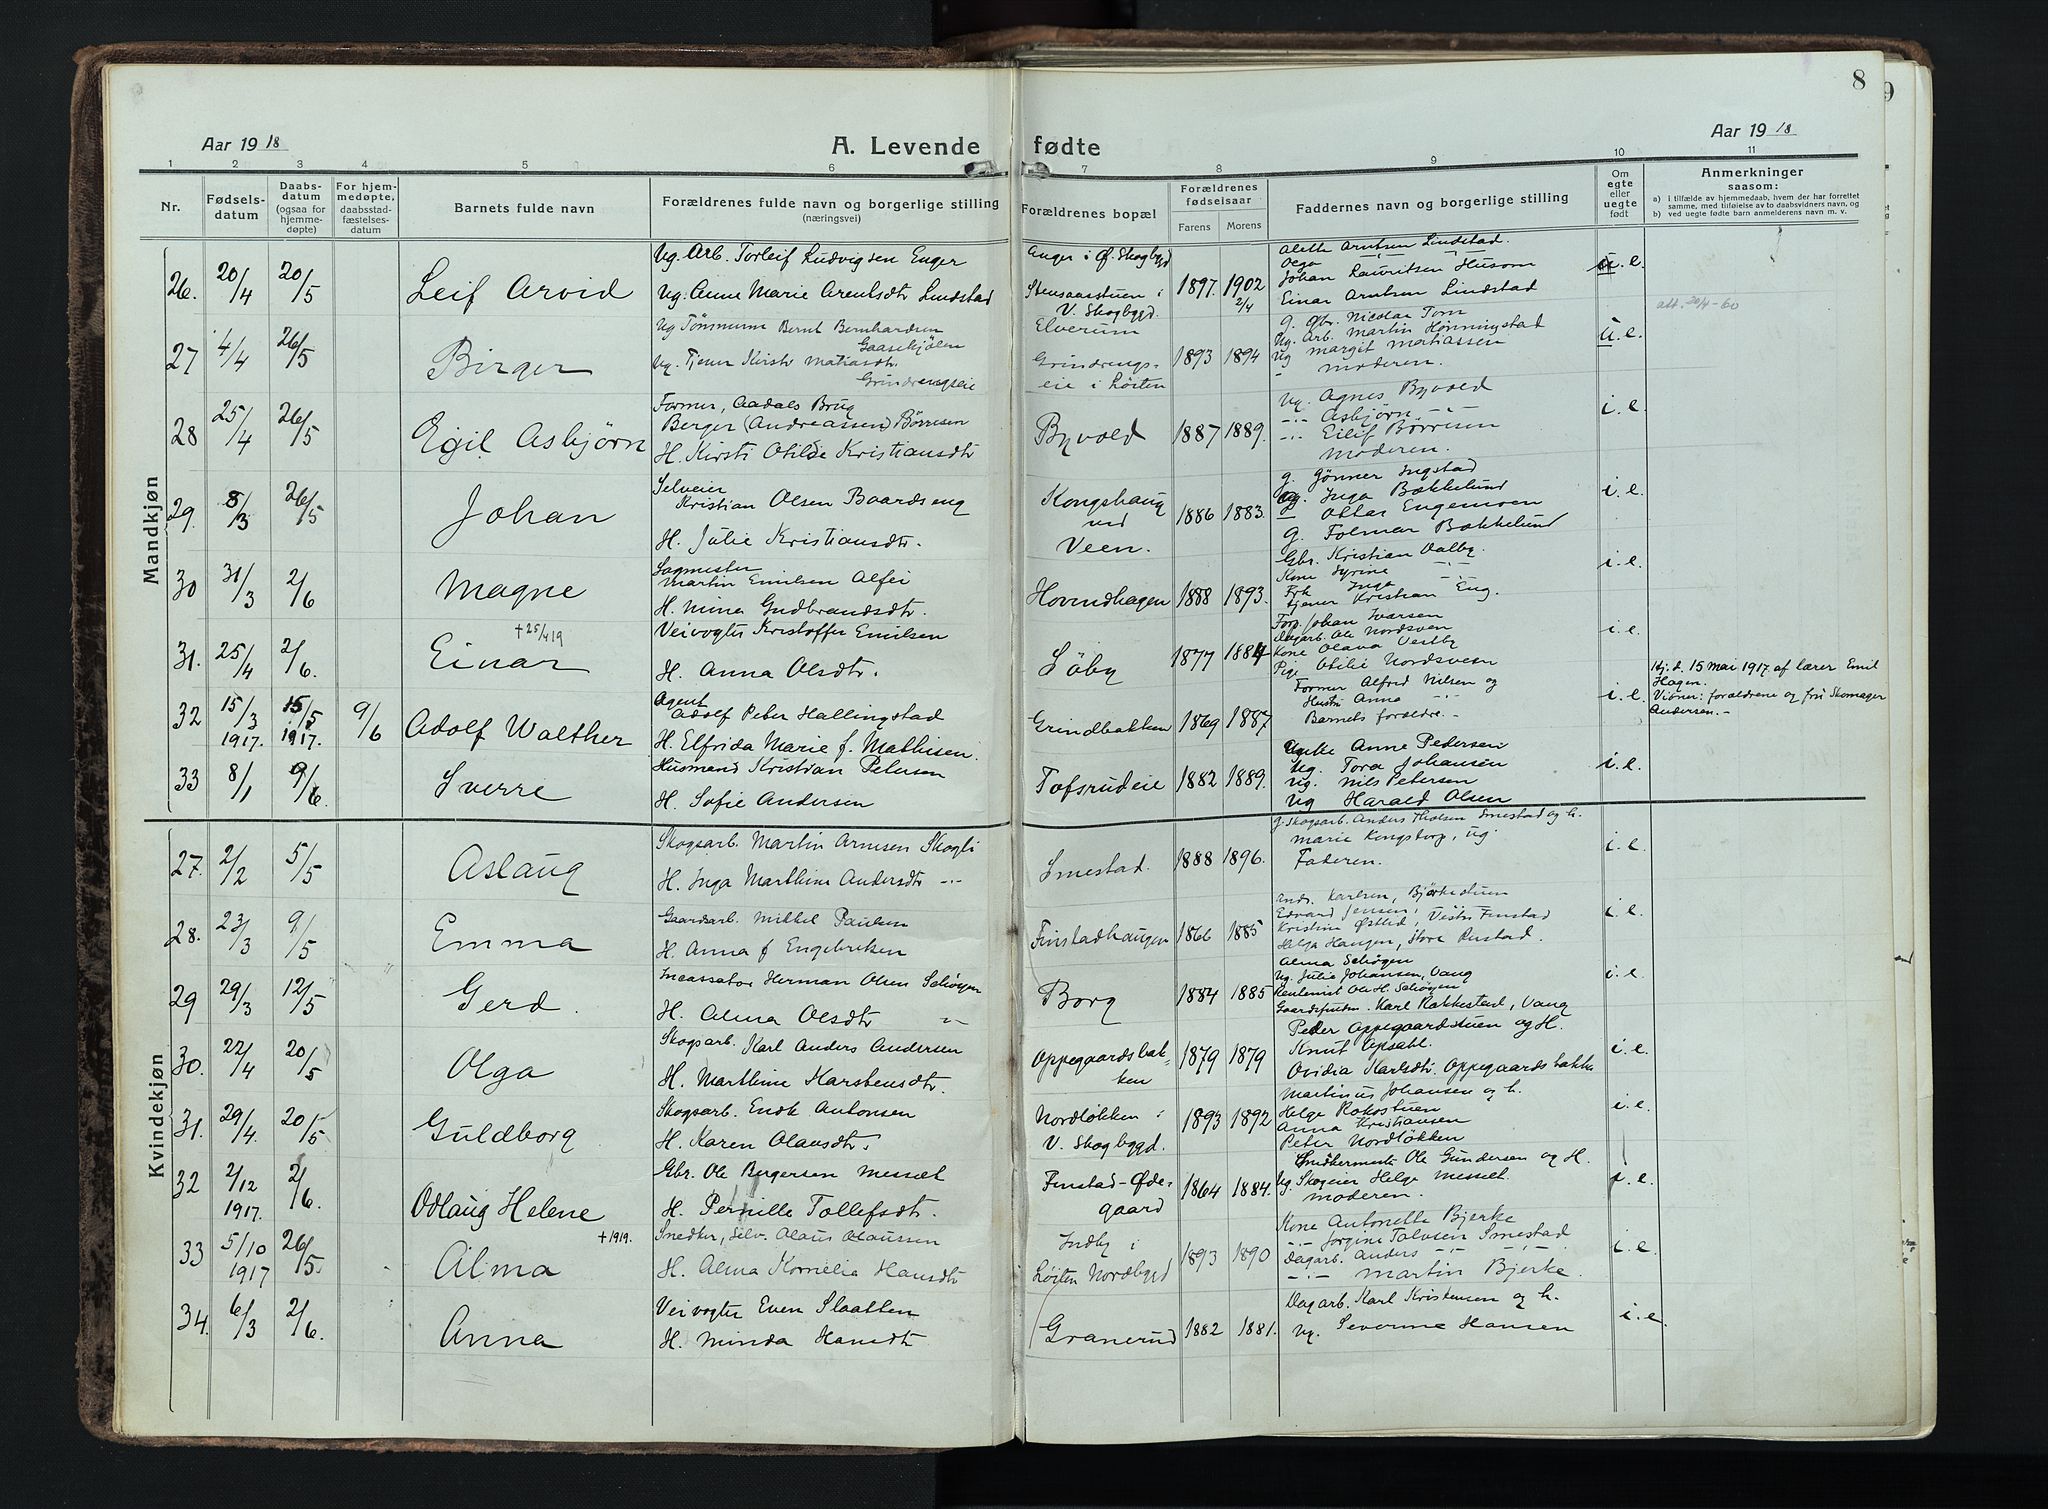 8
9
Aar 1918
A. Levende fødte
Aar 1918
1 2 3 4 5 6 7 8 9 10 11
Nr.
Fødsels-
datum
Daabs-
datum
(ogsaa for
hjemme-
døpte)
For hjem-
medøpte,
daabsstad-
fæstelses-
datum
Barnets fulde navn
Forældrenes fulde navn og borgerlige stilling
(næringsvei)
Forældrenes bopæl
Forældrenes
fødselsaar
Farens Morens
Faddernes navn og borgerlige stilling
Om
egte
eller
uegte
født
Anmerkninger
saasom:
a) i tilfælde av hjemmedaab, hvem der har forrettet
samme, med tilføielse av to daabsvidners navn, og
b) ved uegte fødte barn anmelderens navn m. v.
Mandkjøn
26. 20/4 20/5 Leif Arvid
Ug. Arb. Torleif Ludvigsen Enger
Ug. Anne Marie Arentsdtr Lindstad
Anger i Ø. Skogbygd
Stensaasstuen i
V. Skogbygd.
1897. 1902 2/4
Alette Arntsen Lindstad.
Olga
Johan Lauritsen Husom
Einar Arntsen Lindstad
u.e.
att. 20/4-60
27 4/4 26/5 Birger
Ug Tømmerm Bernt Bernhardsen
Gaasekjølen
Ug. Tjener Kirsti Matiasdtr.
Grindrengseie
Elverum
Grindrengs-
eie i Løiten
1893 1894
g. Gbr. Nicolai Tom
Ug. Arb. Martin Hønningstad
Ug Margit Matiassen
Moderen.
u.e.
28 25/4 26/5 Egil Asbjørn
Former, Aadals Brug
Berger (Andreassen) Børresen
H. Kirsti Otilde Kristiansdtr
Byvold
1887 1889.
Ug. Agnes Byvold
-"- Asbjørn -"-
-"- Eilif Børresen
Moderen.
i.e.
29. 8/3 26/5 Johan
Selveier
Kristian Olsen Baardseng
H. Julie Kristiansdtr.
Kongshaug
ved
Veen.
1886 1883.
g. Gønner Ingstad
Ug. Inga Bækkelund
Ottar Engemoen
g. Folmar Bækkelund
i.e.
30 31/3 2/6 Magne
Sagmester
Martin Emilsen Alfei
H. Mina Gudbrandsdtr.
Hovindhagen
1888 1893.
Gbr. Kristian Dalby.
Kone Syrine -"-
Frk Inga
tjener Kristian Eng.
i.e.
31. 25/4 2/6. Einar
+25/4 19
Veivogter Kristoffer Emilsen
H. Anna Olsdtr.
Løby
1877 1884
Forp. Johan Ivarsen
Dagarb. Ole Nordsveen
Kone Olava Vestby
Pige Otilie Nordsveen
i.e.
32 15/3 1917. 15/5 1917. 9/6 Adolf Walther
Agent
Adolf Peter Hallingstad
H. Elfrida Marie f. Mathisen.
Grindbakken
1869 1887
Former Alfred Nilsen og
Hustru Anna -"-
Barnets forældre. -
i.e.
Hj. d. 15 mai 1917 af lærer Emil
Hagen.
Vidner: forældrene og fru Skomager
Andersen. -
33 8/1 9/6. Sverre
Husmand Kristian Petersen
H. Sofie Andersen
Tofsrudeie
1882 1889.
Enke Anne Pedersen
Ug. Tora Johansen
Ug. Nils Petersen
Ug Harald Olsen
i.e.
Kvindekjøn
27. 2/2 5/5 Aslaug
Skogsarb. Martin Arnesen Skogli
H. Inga Marthine Andersdtr -"-
Smestad.
1888 1896.
g. Skogsarb. Anders Tholsen Smestad og h.
Marie Kongstorp, ug.
Faderen.
i.e.
28. 23/3 9/5 Emma
Gaardsarb. Mikkel Paulsen
H. Anna f Engebretsen
Finstadhaugen
1866 1885
Andr. Karlsen, Bjørkestuen
Edvard Jensen, Vestre Finstad
Kristine Østlid,
Helga Haugen, Store Rustad.
i.e.
29 29/3 12/5 Gerd.
Incassator Herman Olsen Schøyen
H. Alma Olsdtr -"-
Borg
1884 1885
Alma Schøyen
Ug. Julie Johansen, Vang
Rentenist Ole H. Schøyen
Gaardsfuldm. Karl Rokkestad, Vang
i.e.
30. 22/4 20/5 Olga
Skogsarb. Karl Anders Andersen
H. Marthine Karstensdtr.
Oppegaardsbak-
ken
1879 1879
Peder Oppegaardstuen og H.
Knut Opsahl.
Ovidia Karlsdtr. Oppegaardsbakken
i.e.
31. 29/4. 20/5 Guldborg
Skogsarb. Enok Antonsen
H. Karen Olausdtr.
Nordløkken i
V. Skogbygd.
1893 1892
Martinus Johansen og h.
Helge Rokostuen
Anna Kristiansen
Peter Nordløkken
i.e.
32 2/12 1917. 2/6. Odlaug Helene
Gbr. Ole Birgersen Messelt
H. Pernille Tollefsdtr.
Finstad-Øde-
gaard
1864 1884.
Snedkermester Ole Gundersen og H.
Ug. Skogeier Helge Messelt.
Moderen.
i.e.
33 5/10 1917 26/5. Alma
+1919.
Snedker, Selv. Olaus Olaussen
H. Alma Kornelia Hansdtr
Indby i
Løiten Nordbygd
1893 1890
Kone Antonette Bjerke
-"- Jorgine Tolvsen Smestad
Dagarb. Anders -"- -"-
-"- Martin Bjerke.
i.e.
34. 6/3 2/6. Anna
Veivogter Even Slaatten
H. Minda Hansdtr
Granerud
1882 1881.
Dagarb. Karl Kristensen og h.
Ug. Severine Hansen
i.e.